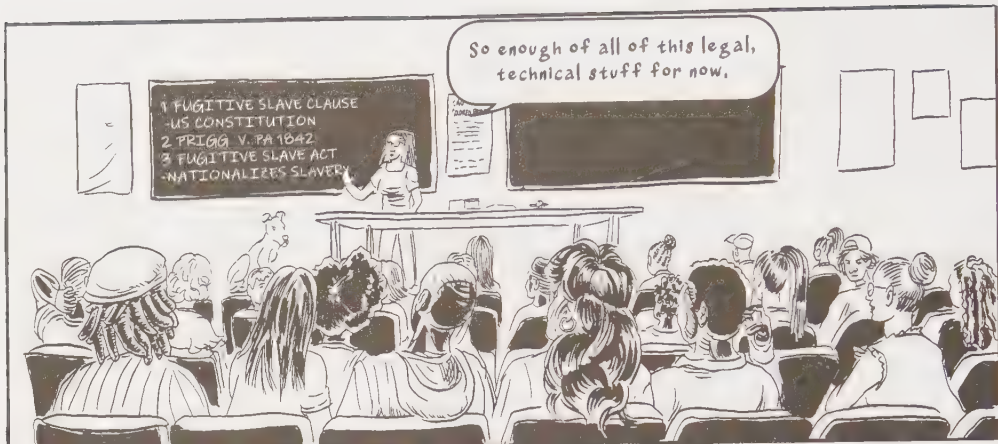 So enough of all of this legal,
technical stuff for now.
1 FUGITIVE SLAVE CLAUSE
-US CONSTITUTION
2 PRIGG V. PA 1842
3 FUGITIVE SLAVE ACT
-NATIONALIZES SLAVERY